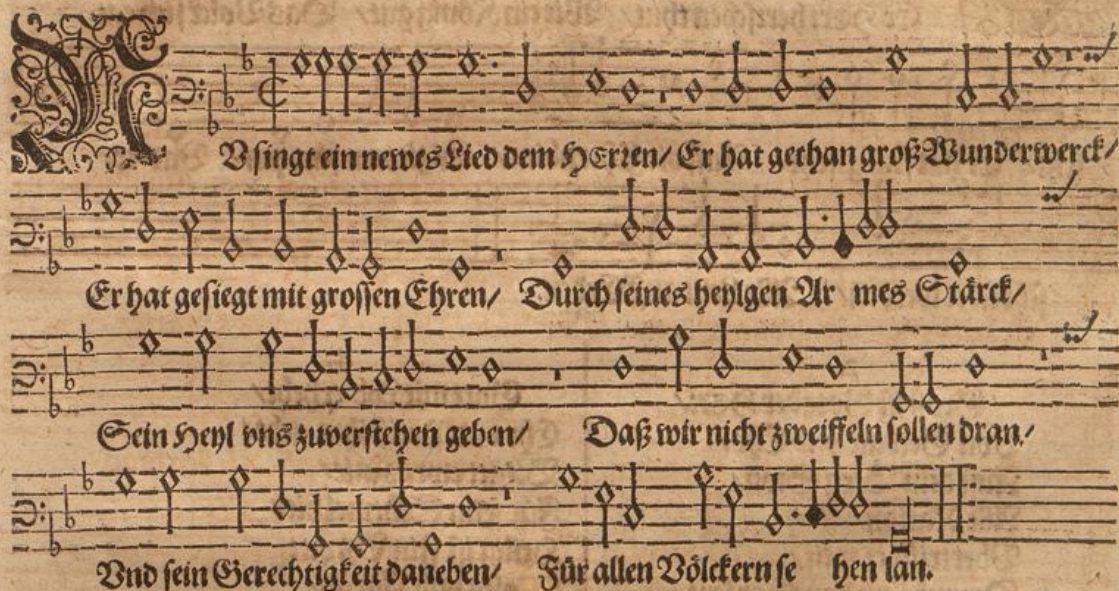 NV singt ein newes Lied dem HErren/ Er hat gethan groß Wunderwerck/
Er hat gesiegt mit grossen Ehren/ Durch seines heylgen Ar mes Stärck/
Sein Heyl vns zuverstehen geben/ Daß wir nicht zweiffeln sollen dran/
Vnd sein Gerechtigkeit daneben/ Für allen Völckern se hen lan.